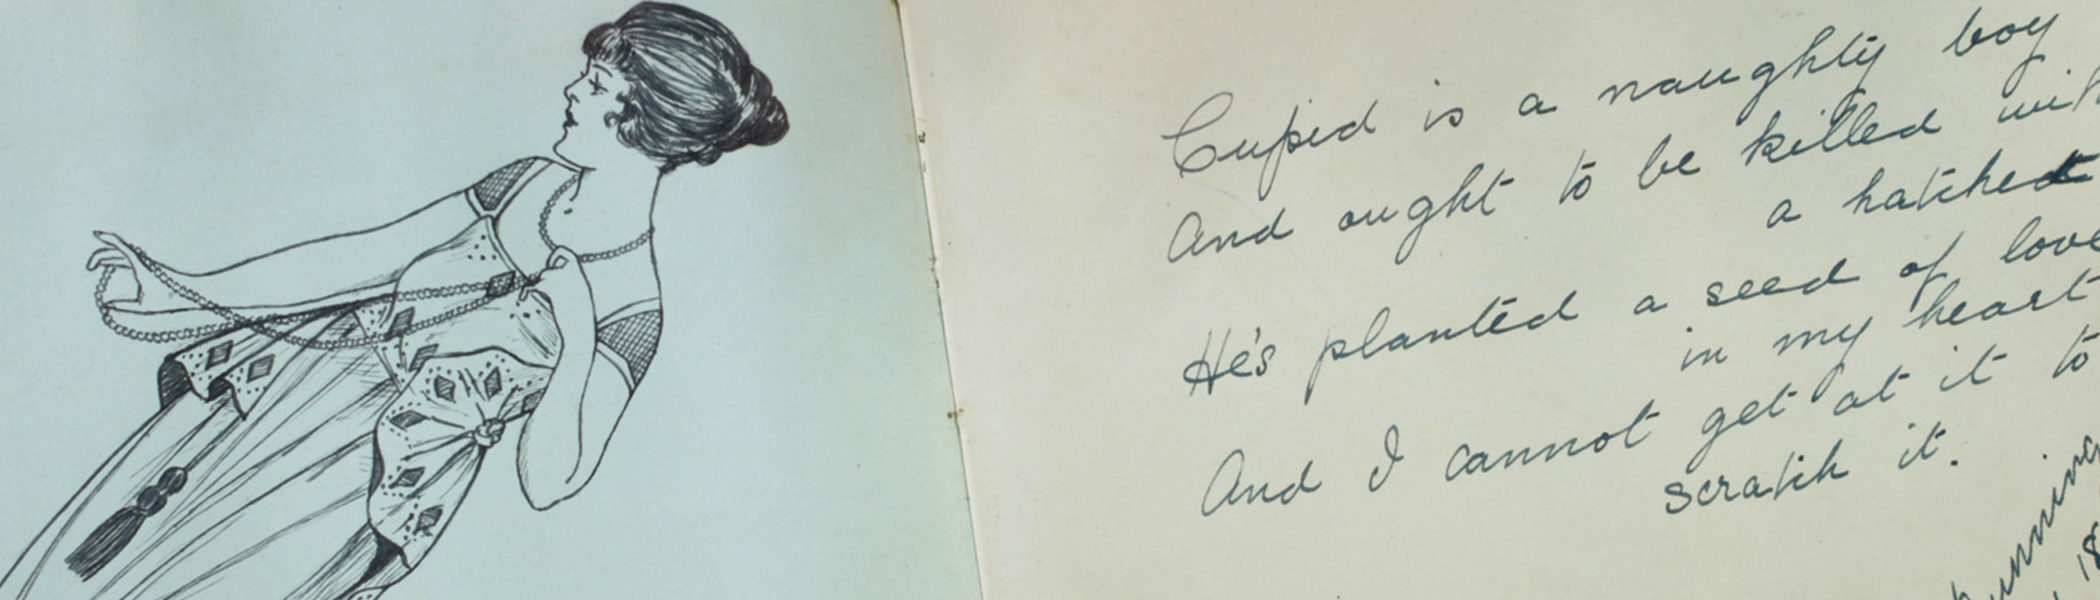 Cupid is a naughty boy
And ought to be killed with
a hatchet
He's planted a seed of love
in my heart
And I cannot get at it to
scratch it.